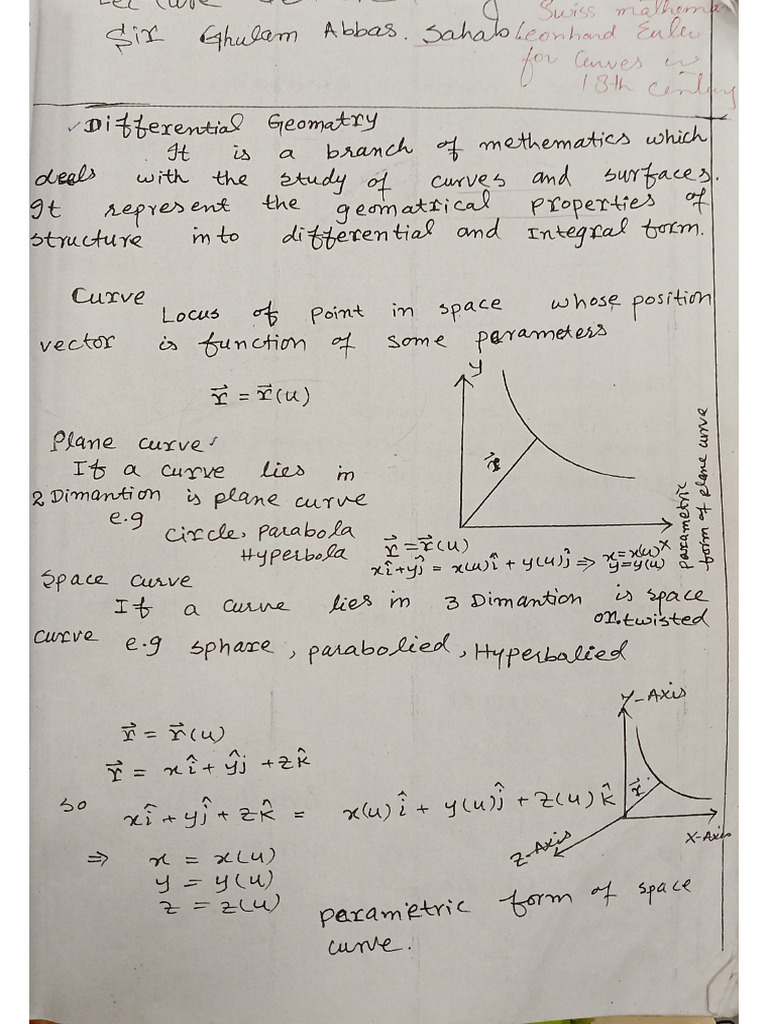 Lecture
Sir Ghulam Abbas. Sahab
Swiss mathema
Leonhard Euler
for Curves in
18th century
Differential Geomatry
It is a branch of mathematics which
deals with the study of curves and surfaces.
It represent the geomatrical properties of
structure in to differential and Integral form.
Curve
Locus of point in space whose position
vector is function of some parameters
r⃗ = r⃗(u)
Y
r⃗
X
Plane curve
If a curve lies in
2 Dimantion is plane curve
e.g
circle, parabola
Hyperbola
r⃗ = r⃗(u)
xî+yĵ = x(u)î + y(u)ĵ ⇒ x=x(u)
y=y(u)
parametric
form of plane curve
Space curve
If a curve lies in 3 Dimantion is space
or twisted
curve e.g sphare, parabolied, Hyperbolied
r⃗ = r⃗(u)
r⃗ = xî + yĵ + zk̂
so xî + yĵ + zk̂ = x(u)î + y(u)ĵ + z(u)k̂
⇒ x = x(u)
y = y(u)
z = z(u)
parametric form of space
curve.
Y-Axis
r⃗
X-Axis
Z-Axis